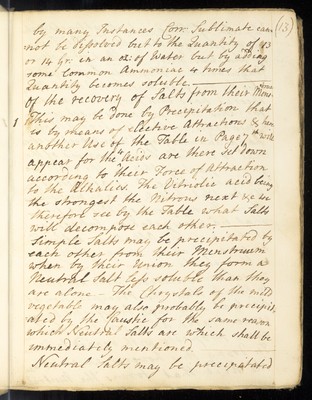 (13)
by many Instances. Corr: Sublimate can
not be dissolved but to the Quantity of 13
or 14 gr. in an oz: of Water but by adding
some Common Ammoniac 4 times that
Quantity becomes soluble.
of the recovery of Salts from their
1 This may be done by Precipitation that
is by means of Elective Attractions & here
another Use of the Table in Page 7th will
appear for the Acids are there set down
according to their Force of Attraction
to the Alkalies. The Vitriolic acid being
the strongest the Nitrous next &c we
therefore see by the Table what Salts
will decompose each other.
Simple Salts may be precipitated by
each other from their Menstruum
when by their Union they form a
Neutral Salt less soluble than they
are alone — The Crystals of the mild
vegetable may also probably be precipit
ated by the Caustic for the same reason
which Neutral Salts are which shall be
immediately mentioned.
Neutral Salts may be precipitated